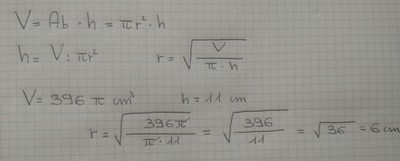 V = Ab · h = πr² · h
h = V : πr² r = √(V / π · h)
V = 396 π cm³ h = 11 cm
r = √(396π / π · 11) = √(396 / 11) = √36 = 6 cm